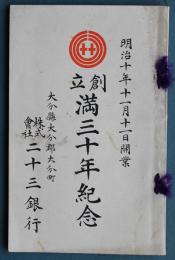 明治十年十一月十一日開業
創立満三十年紀念
大分縣大分郡大分町
株式會社二十三銀行